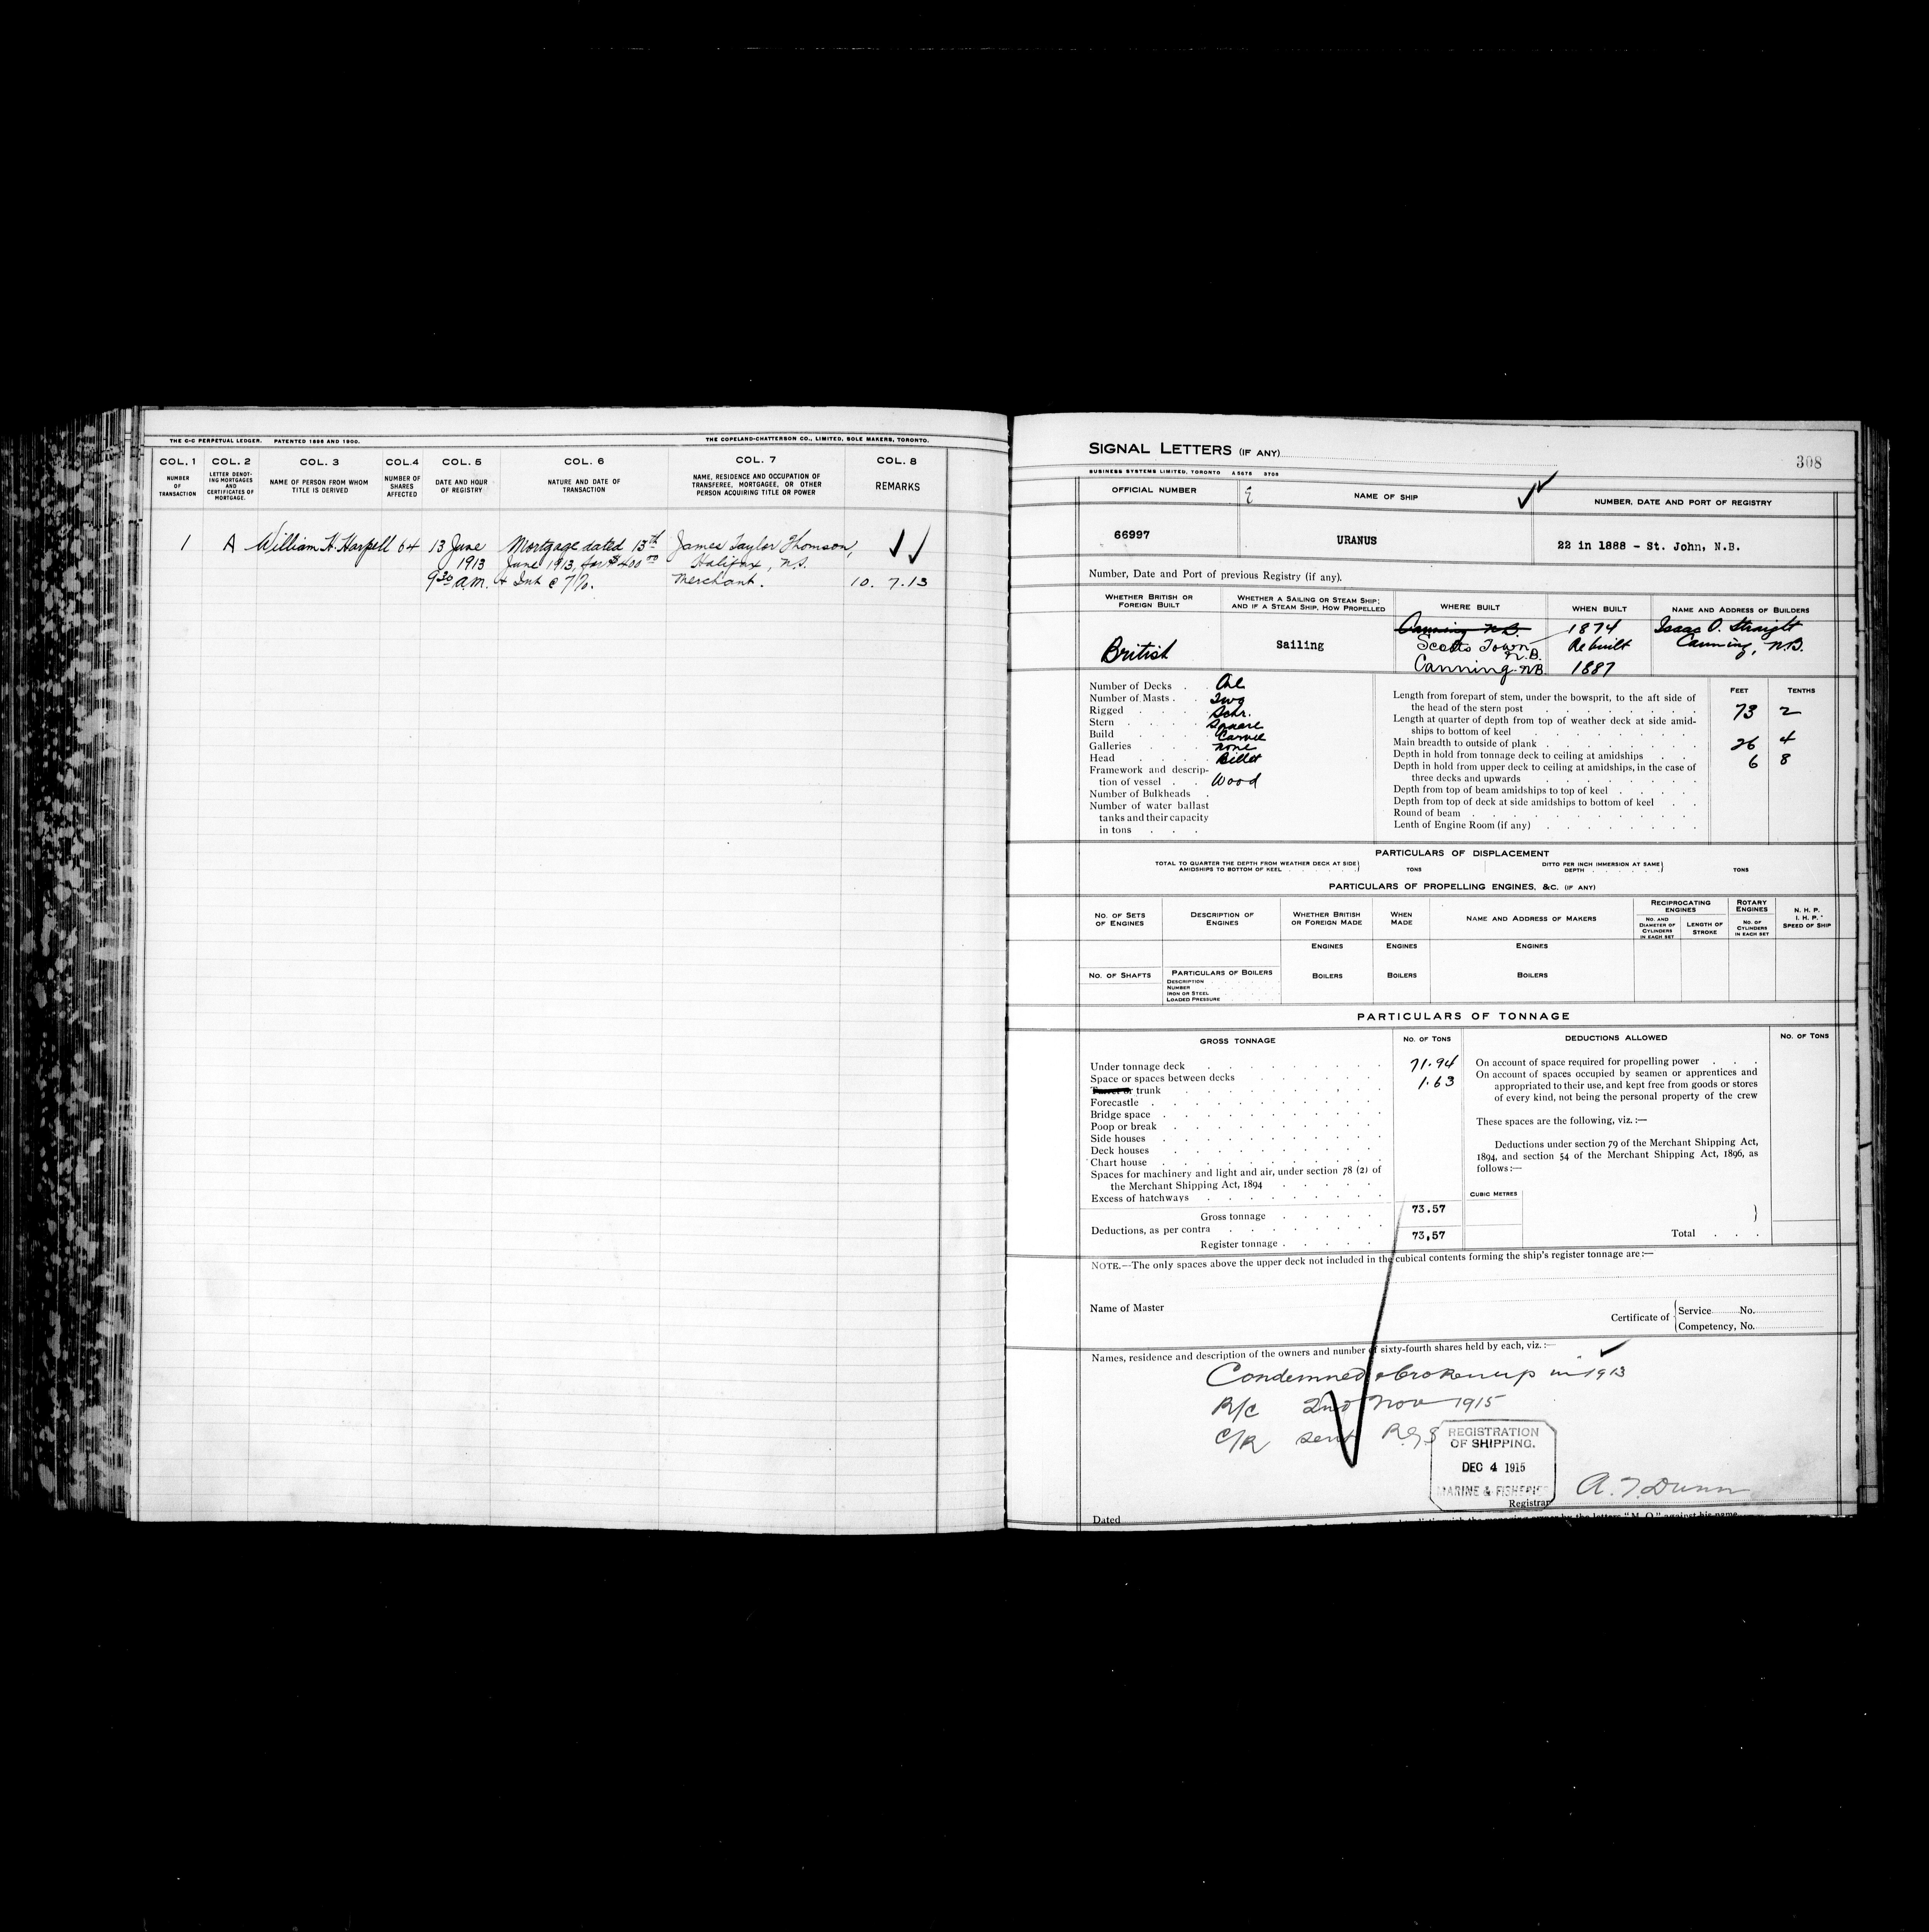 THE C-C PERPETUAL LEDGER. PATENTED 1896 AND 1900. THE COPELAND-CHATTERSON CO., LIMITED, SOLE MAKERS, TORONTO.
COL. 1 COL. 2 COL. 3 COL. 4 COL. 5 COL. 6 COL. 7 COL. 8
NUMBER OF TRANSACTION
LETTER DENOTING MORTGAGES AND CERTIFICATES OF MORTGAGE.
NAME OF PERSON FROM WHOM TITLE IS DERIVED
NUMBER OF SHARES AFFECTED
DATE AND HOUR OF REGISTRY
NATURE AND DATE OF TRANSACTION
NAME, RESIDENCE AND OCCUPATION OF TRANSFEREE, MORTGAGEE, OR OTHER PERSON ACQUIRING TITLE OR POWER
REMARKS
1 A William H. Harpell 64 13 June Mortgage dated 13th James Taylor Thomson,
1913 June 1913, for $400 00 Halifax, N.S.
9 30 a.m. + Int @ 7%. Merchant. 10. 7. 13
SIGNAL LETTERS (IF ANY)
308
BUSINESS SYSTEMS LIMITED, TORONTO
OFFICIAL NUMBER NAME OF SHIP NUMBER, DATE AND PORT OF REGISTRY
66997 URANUS 22 in 1888 - St. John, N.B.
Number, Date and Port of previous Registry (if any).
WHETHER BRITISH OR FOREIGN BUILT
WHETHER A SAILING OR STEAM SHIP; AND IF A STEAM SHIP, HOW PROPELLED
WHERE BUILT WHEN BUILT NAME AND ADDRESS OF BUILDERS
Canning N.B. 1874 Isaac O. Straight
British Sailing Scotts Town N.B. Rebuilt Canning, N.B.
Canning NB. 1887
Number of Decks One
Number of Masts Two
Rigged Schr.
Stern Square
Build Carvel
Galleries None
Head Billet
Framework and description of vessel Wood
Number of Bulkheads
Number of water ballast tanks and their capacity in tons
FEET TENTHS
Length from forepart of stem, under the bowsprit, to the aft side of the head of the stern post 73 2
Length at quarter of depth from top of weather deck at side amidships to bottom of keel
Main breadth to outside of plank 26 4
Depth in hold from tonnage deck to ceiling at amidships 6 8
Depth in hold from upper deck to ceiling at amidships, in the case of three decks and upwards
Depth from top of beam amidships to top of keel
Depth from top of deck at side amidships to bottom of keel
Round of beam
Lenth of Engine Room (if any)
PARTICULARS OF DISPLACEMENT
TOTAL TO QUARTER THE DEPTH FROM WEATHER DECK AT SIDE AMIDSHIPS TO BOTTOM OF KEEL TONS DITTO PER INCH IMMERSION AT SAME DEPTH TONS
PARTICULARS OF PROPELLING ENGINES, &C. (IF ANY)
NO. OF SETS OF ENGINES
DESCRIPTION OF ENGINES
WHETHER BRITISH OR FOREIGN MADE
WHEN MADE
NAME AND ADDRESS OF MAKERS
RECIPROCATING ENGINES
NO. AND DIAMETER OF CYLINDERS IN EACH SET
LENGTH OF STROKE
ROTARY ENGINES
NO. OF CYLINDERS IN EACH SET
N. H. P.
I. H. P.
SPEED OF SHIP
ENGINES ENGINES ENGINES
NO. OF SHAFTS PARTICULARS OF BOILERS BOILERS BOILERS BOILERS
DESCRIPTION
NUMBER
IRON OR STEEL
LOADED PRESSURE
PARTICULARS OF TONNAGE
GROSS TONNAGE NO. OF TONS DEDUCTIONS ALLOWED NO. OF TONS
Under tonnage deck 71.94
Space or spaces between decks 1.63
Turret or trunk
Forecastle
Bridge space
Poop or break
Side houses
Deck houses
Chart house
Spaces for machinery and light and air, under section 78 (2) of the Merchant Shipping Act, 1894
Excess of hatchways
Gross tonnage 73.57
Deductions, as per contra
Register tonnage 73,57
On account of space required for propelling power
On account of spaces occupied by seamen or apprentices and appropriated to their use, and kept free from goods or stores of every kind, not being the personal property of the crew
These spaces are the following, viz.:—
Deductions under section 79 of the Merchant Shipping Act, 1894, and section 54 of the Merchant Shipping Act, 1896, as follows:—
CUBIC METRES
Total
NOTE.—The only spaces above the upper deck not included in the cubical contents forming the ship's register tonnage are:—
Name of Master
Certificate of Service No.
Competency, No.
Names, residence and description of the owners and number of sixty-fourth shares held by each, viz.:—
Condemned & broken up in 1913
R/C 2nd Nov 1915
C/R sent R.G.S
REGISTRATION
OF SHIPPING.
DEC 4 1915
MARINE & FISHERIES
A. T. Dunn
Registrar
Dated